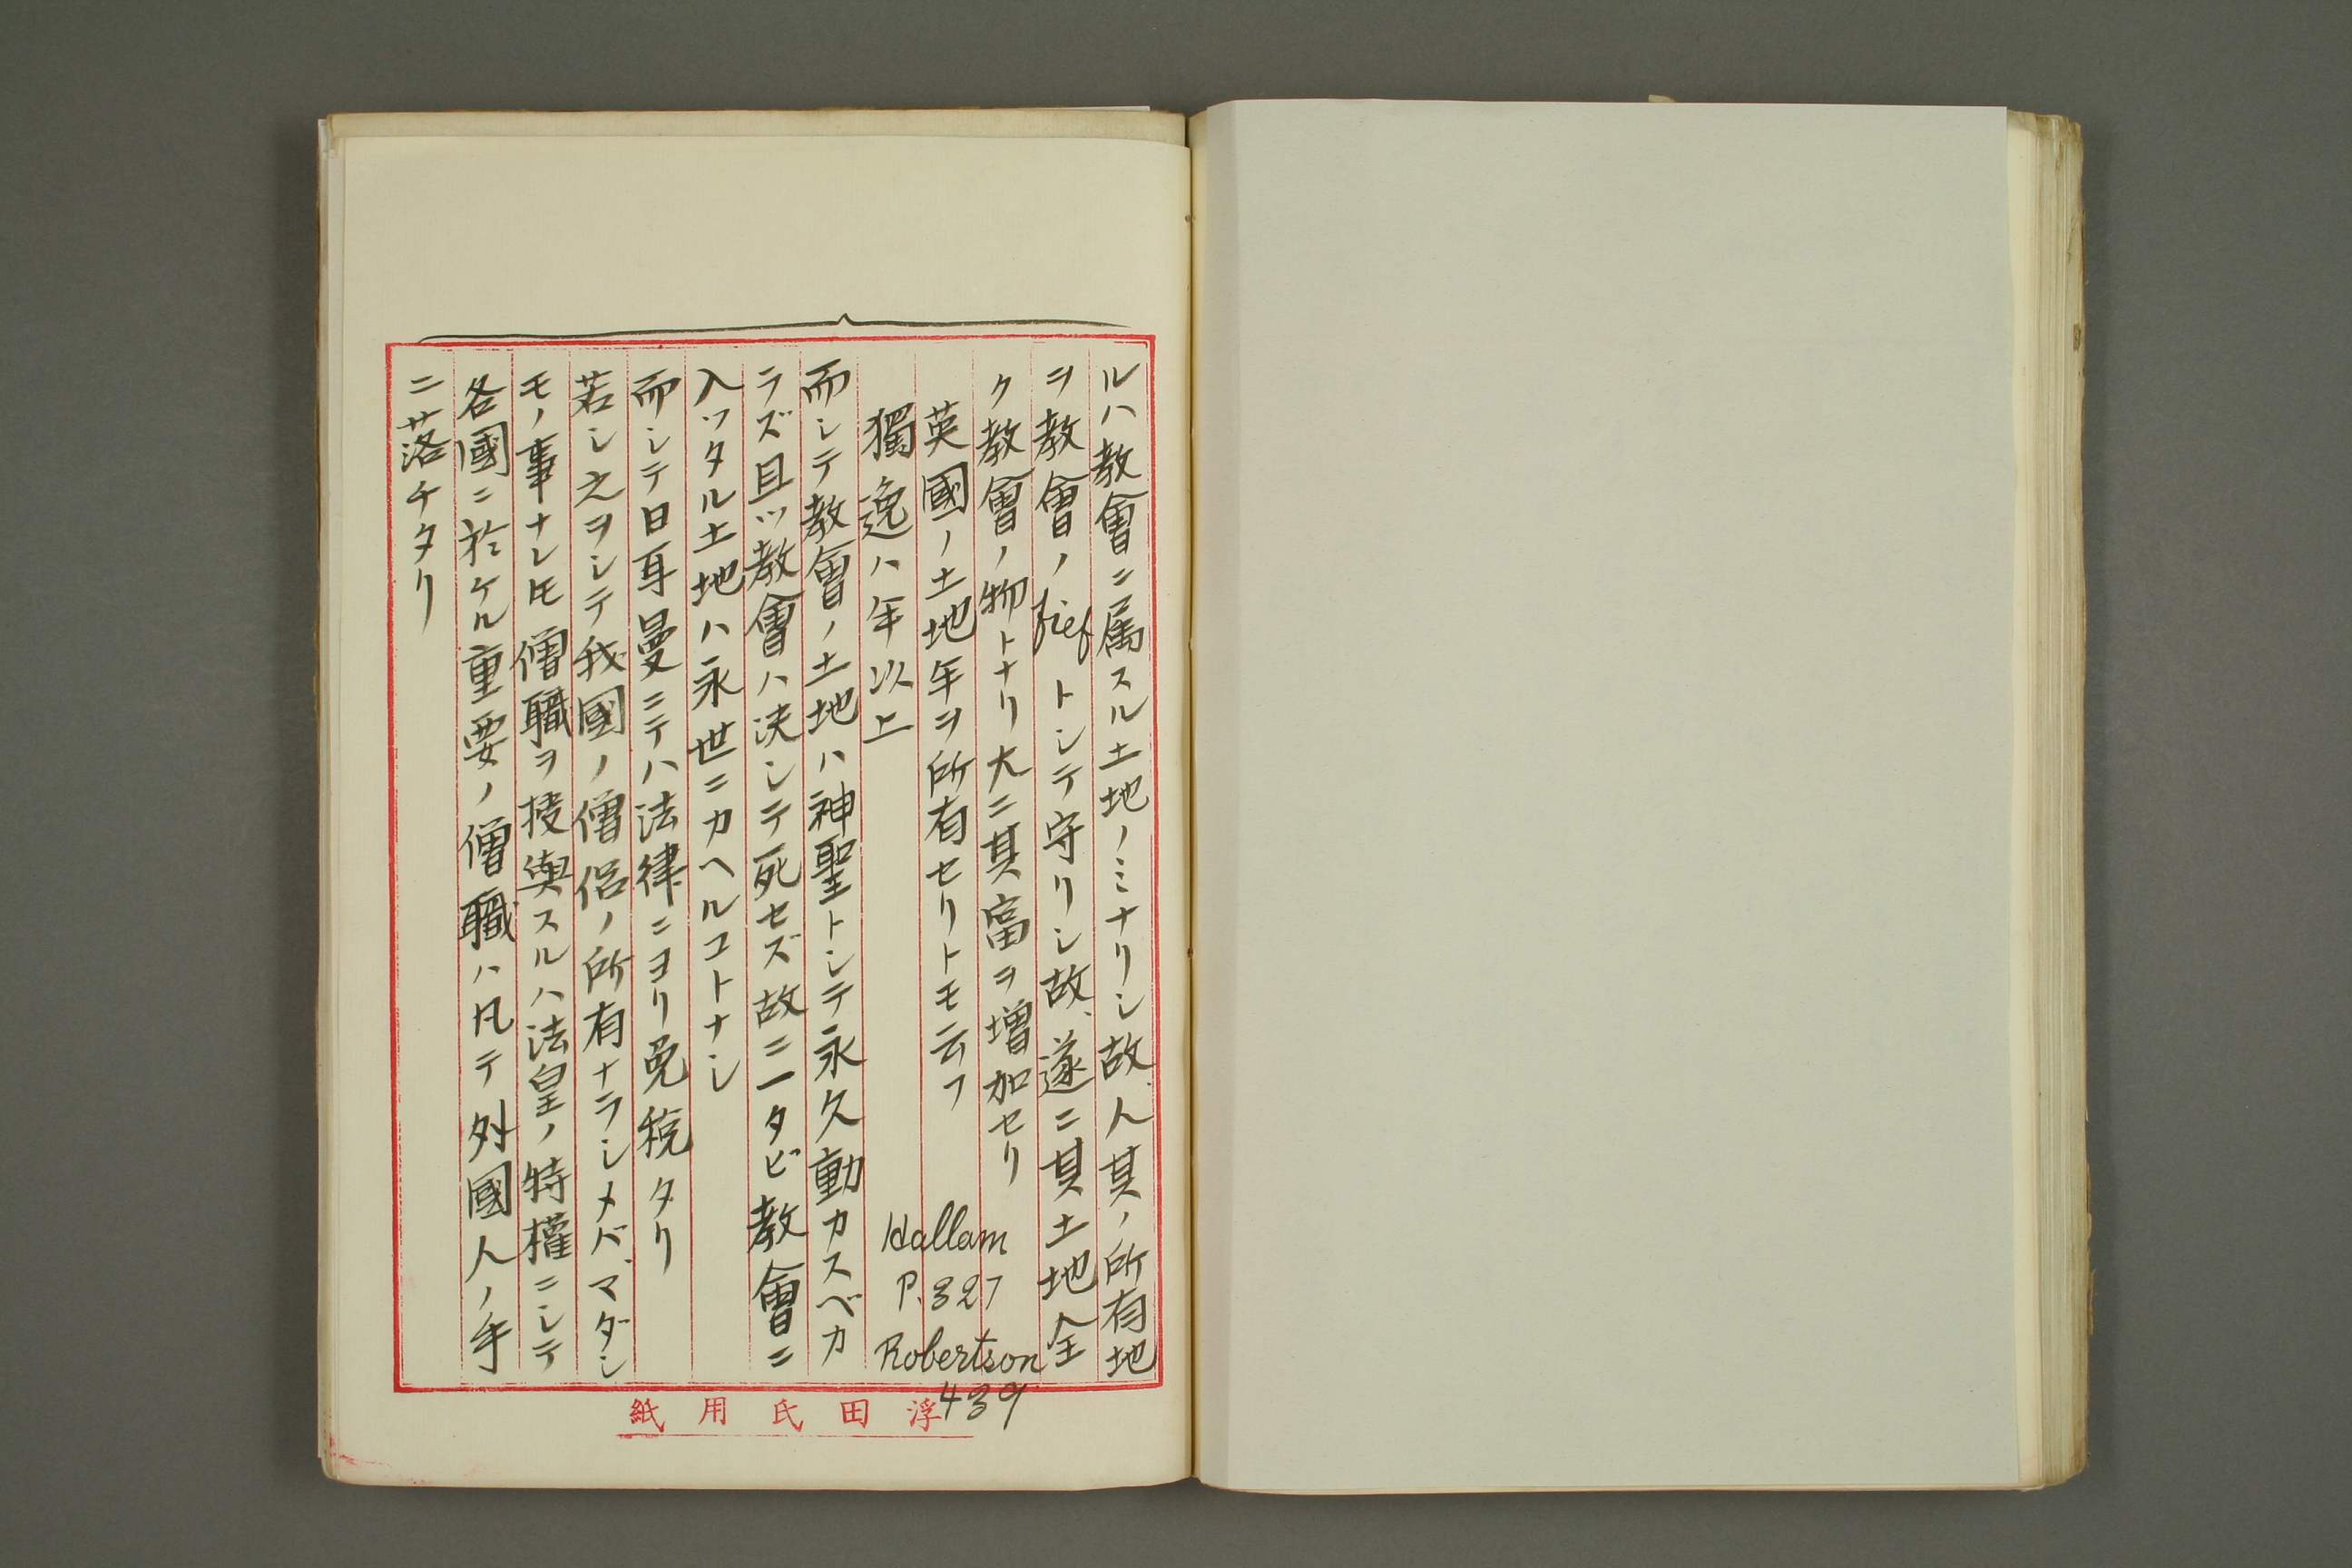 ルハ教會ニ属スル土地ノミナリシ故、人其ノ所有地
ヲ教會ノfiefトシテ守リシ故、遂ニ其土地全
ク教會ノ物トナリ大ニ其富ヲ増加セリ
英國ノ土地半ヲ所有セリトモ云フ
獨逸ハ半以上
Hallam
P. 327
Robertson
439
而シテ教會ノ土地ハ神聖トシテ永久動カスベカ
ラズ且ツ教會ハ决シテ死セズ故ニ一タビ教會ニ
入ツタル土地ハ永世ニカヘルコトナシ
而シテ日耳曼ニテハ法律ニヨリ免税タリ
若シ之ヲシテ我國ノ僧侶ノ所有ナラシメバ、マダシ
モノ事ナレ𪜈僧職ヲ授與スルハ法皇ノ特權ニシテ
各國ニ於ケル重要ノ僧職ハ凡テ外國人ノ手
ニ落チタリ
浮田氏用紙